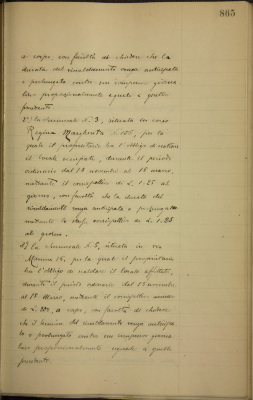 865
a corpo, con facoltà di chiedere che la
durata del riscaldamento venga anticipata
o prolungata contro un compenso giorna-
liero proporzionalmente eguale a quello
pendente.
2°) la Succursale N. 3, situata in corso
Regina Margherita N. 108, per la
quale il proprietario ha l'obbligo di riscaldare
il locale occupato, durante il periodo
ordinario dal 1° novembre al 15 marzo,
mediante il corrispettivo di L. 1.25 al
giorno, con facoltà che la durata del
riscaldamento venga anticipata o prolungata
mediante lo stesso corrispettivo di L. 1.25
al giorno.
3) la Succursale N. 5, situata in via
16, per la quale il proprietario
ha l'obbligo di riscaldare il locale affittato,
durante il periodo ordinario dal 1° novembre
al 15 Marzo, mediante il corrispettivo annuo
di L. a corpo, con facoltà di chiedere
che il termine del riscaldamento venga anticipato
o prolungato contro un compenso giorna-
liero proporzionalmente eguale a quello
pendente.